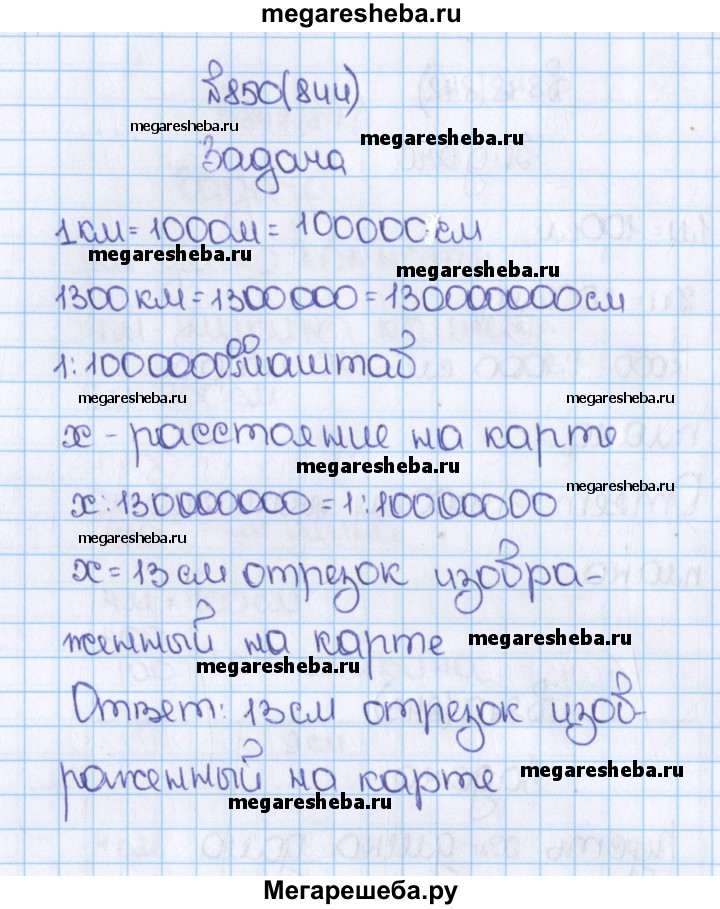 megaresheba.ru
№850(844)
megaresheba.ru
megaresheba.ru
Задача
1км=1000м=100000см
megaresheba.ru
megaresheba.ru
1300км=1300000=130000000см
1:10000000 маштаб
megaresheba.ru
megaresheba.ru
x - расстояние на карте
megaresheba.ru
megaresheba.ru
x:130000000=1:10000000
megaresheba.ru
x=13см отрезок изобра-
женный на карте
megaresheba.ru
megaresheba.ru
Ответ: 13см отрезок изоб-
раженный на карте
megaresheba.ru
megaresheba.ru
Мегарешеба.ру